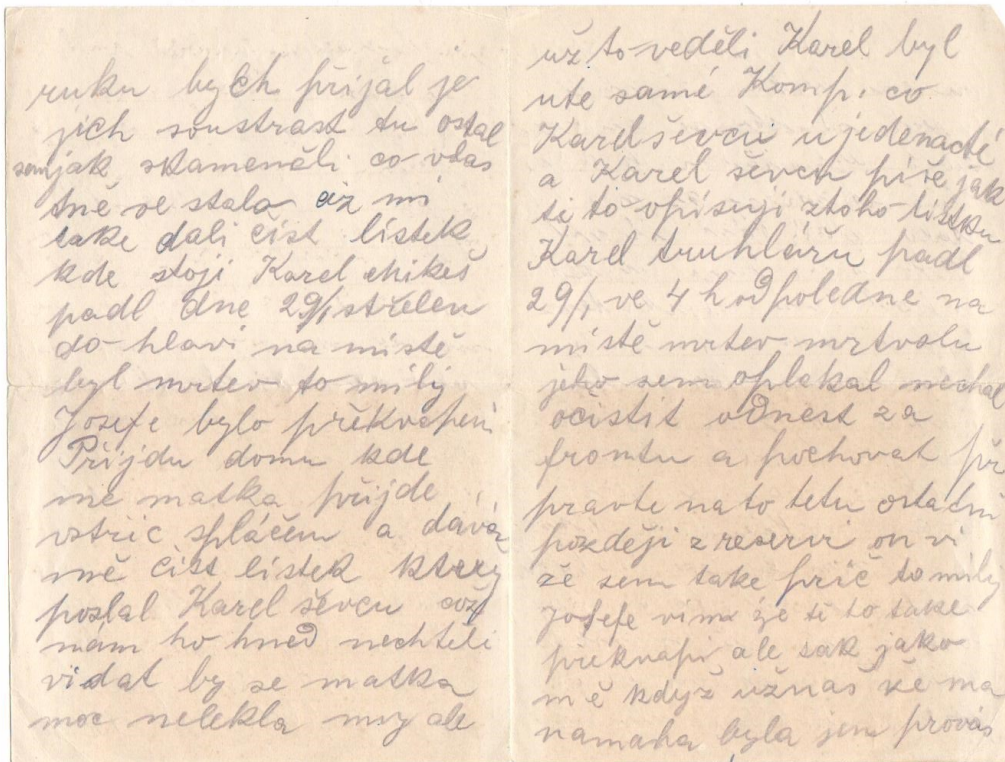 ruku bych přijal je
jich soustrast tu ostal
sem jak skameněli co vlas
tně se stalo až mi
take dali čist listek
kde stoji Karel
padl dne 29/1 střelen
do hlavi na mistě
byl mrtev to mily
Josefe bylo překvapeni
Přijdu domu kde
mě matka přijde
vstřic spláčem a dává
mně čist listek ktery
poslal Karel ševcu
nám ho hned nechteli
vidat by se matka
moc nelekla my ale
už to veděli Karel byl
ute samé Komp. co
Karel ševcu u jedenacte
a Karel ševcu piše jak
ti to opisuji ztoho listku
Karel truhláru padl
29/1 ve 4 h odpoledne na
mistě mrtev mrtvolu
jeho sem oplakal nechal
očistit odnest za
frontu a pochovat při
pravte na to tetu ostatni
později z reservi on vi
že sem take prič to mily
Josefe vim že ti to take
překvapi ale sak jako
mě když užnas vé ma
namaha byla jen